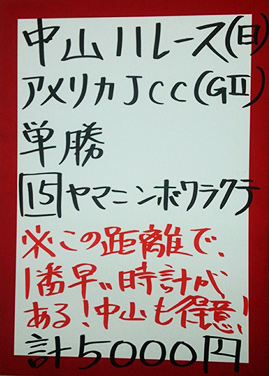 中山11レース(日)
アメリカJCC(GⅡ)
単勝
15ヤマニンボワラクテ
※この距離で、
1番早い時計が
ある!中山も得意!
計5000円